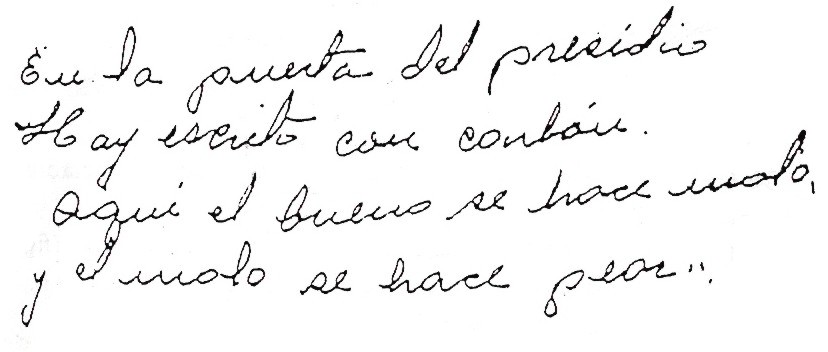 En la puerta del presidio
Hay escrito con carbón.
Aquí el bueno se hace malo,
y el malo se hace peor".